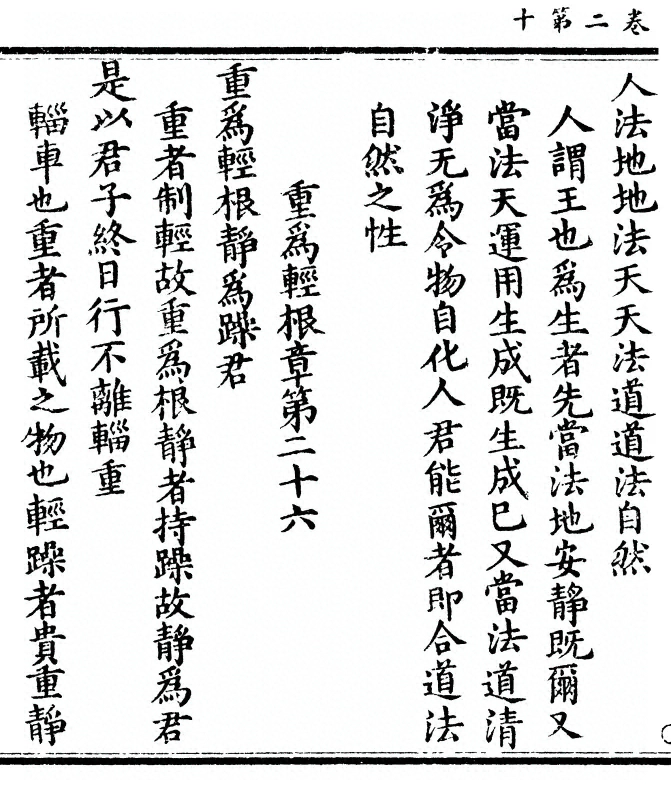 卷二第十
人法地地法天天法道道法自然
人謂王也爲生者先當法地安靜既爾又
當法天運用生成既生成已又當法道清
淨无爲令物自化人君能爾者即合道法
自然之性
重爲輕根章第二十六
重爲輕根靜爲躁君
重者制輕故重爲根靜者持躁故靜爲君
是以君子終日行不離輜重
輜車也重者所載之物也輕躁者貴重靜